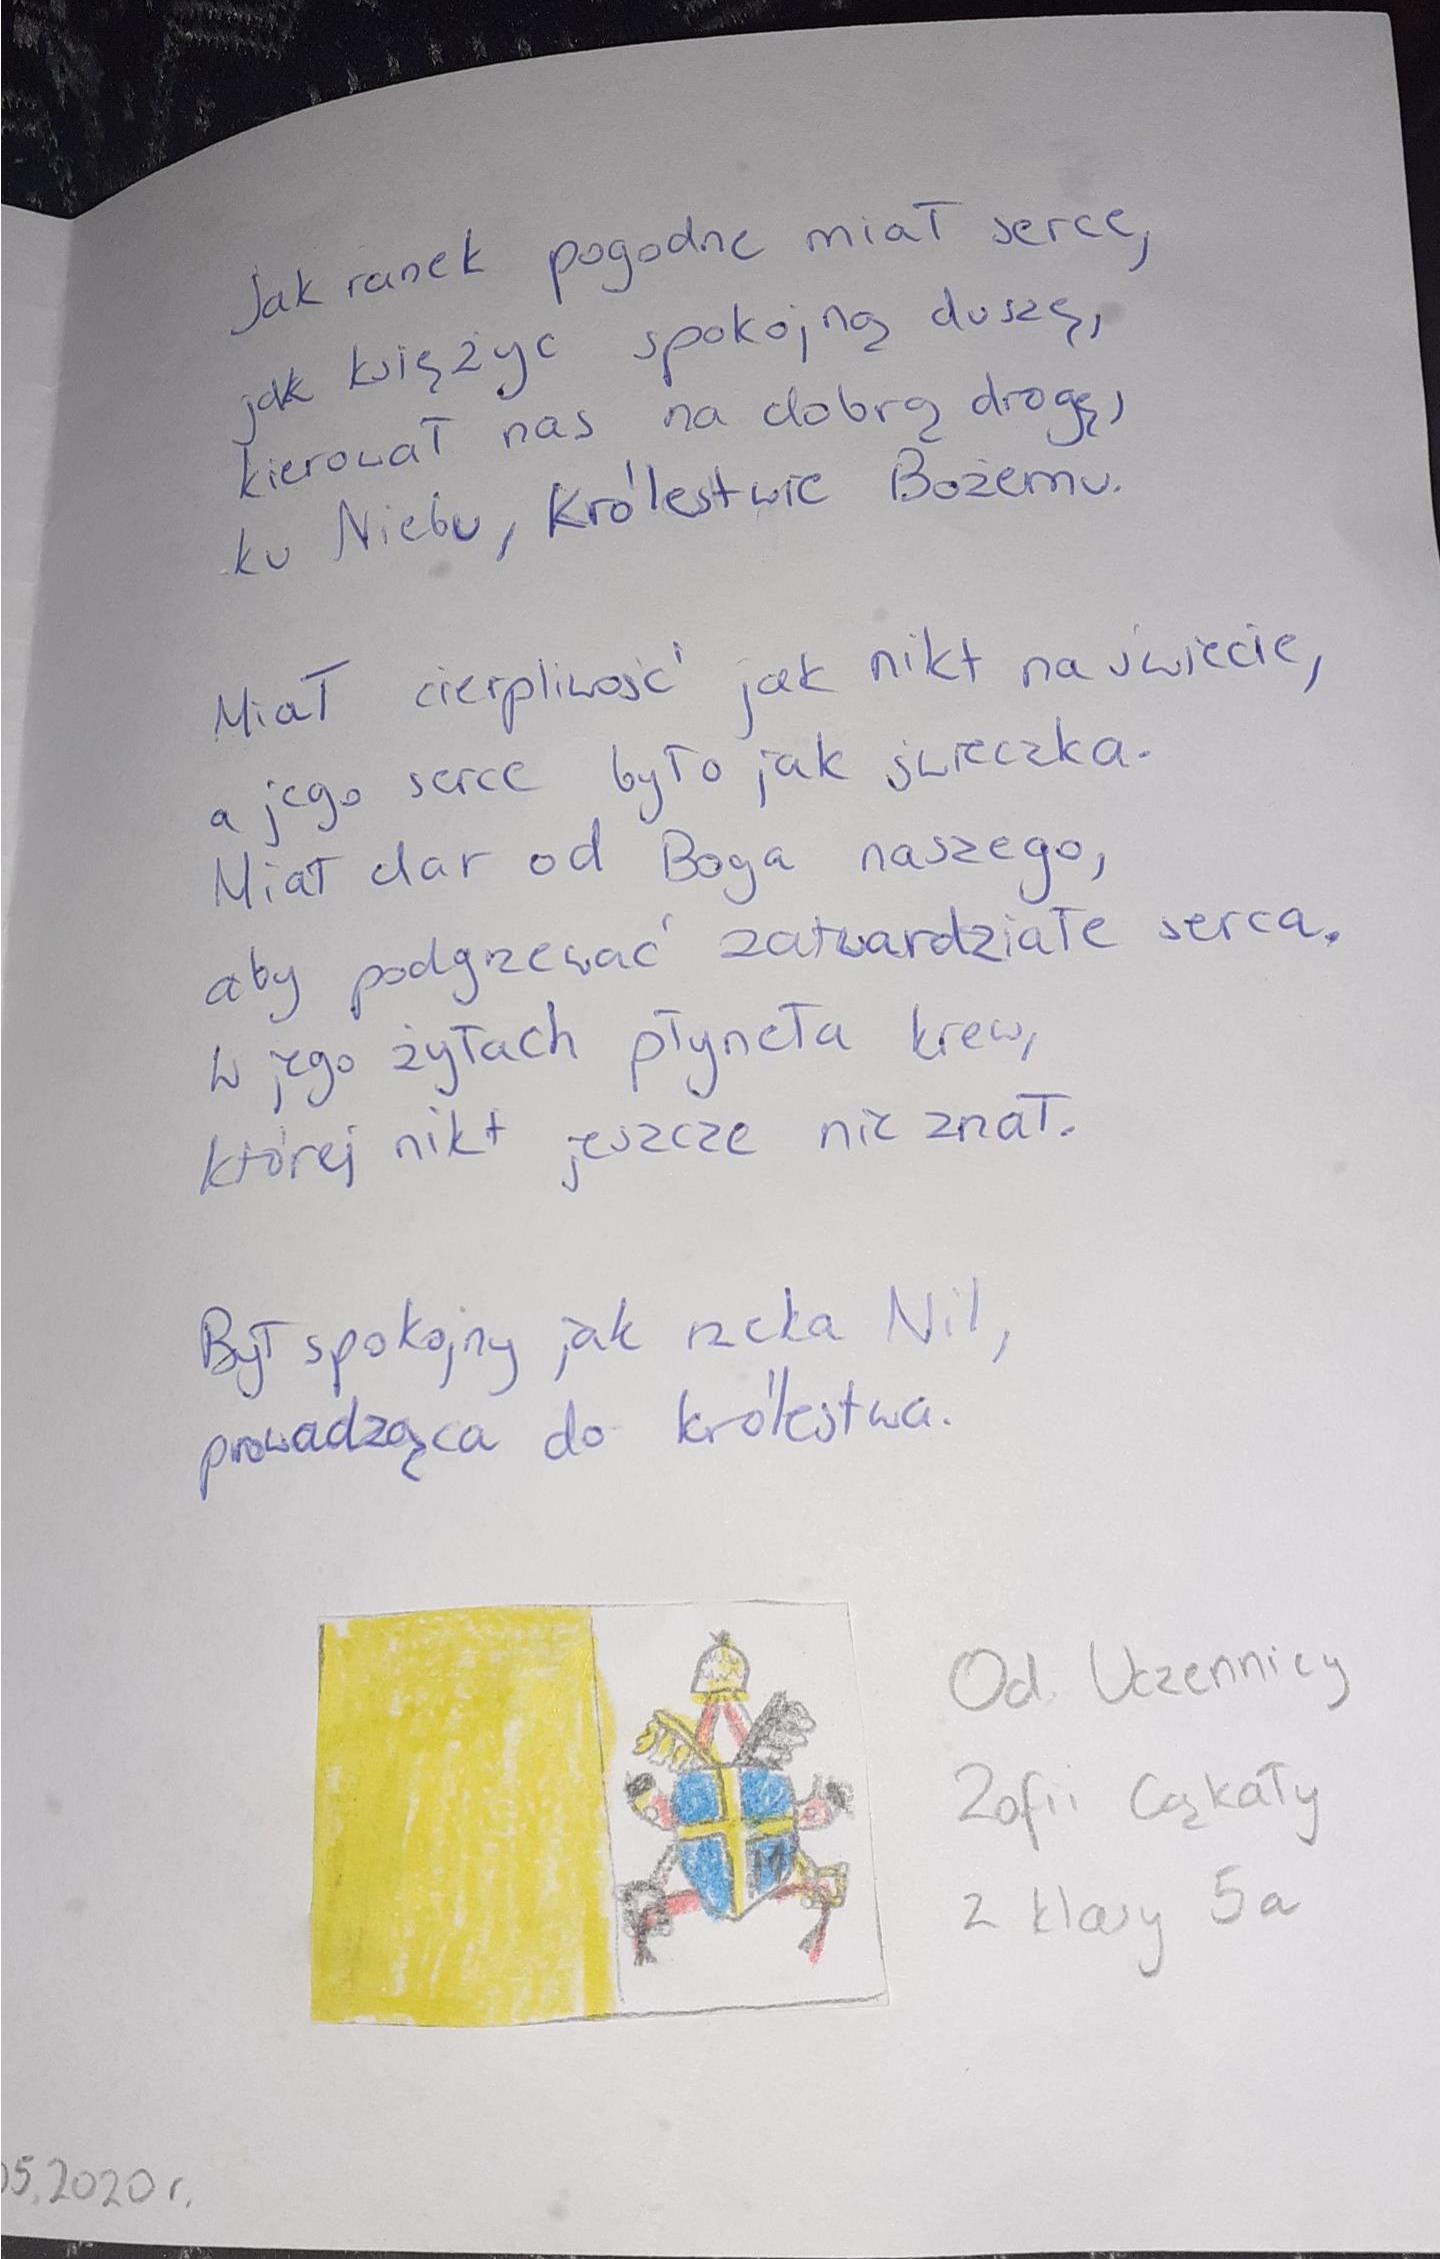 Jak ranek pogodne miał serce,
jak księżyc spokojną duszę,
kierował nas na dobrą drogę,
ku Niebu, Królestwie Bożemu.
Miał cierpliwość jak nikt na świecie,
a jego serce było jak świeczka.
Miał dar od Boga naszego,
aby podgrzewać zatwardziałe serca.
W jego żyłach płyneła krew,
której nikt jeszcze nie znał.
Był spokojny jak rzeka Nil,
prowadząca do królestwa.
M
Od Uczennicy
Zofii Cąkały
z klasy 5a
05.2020 r.